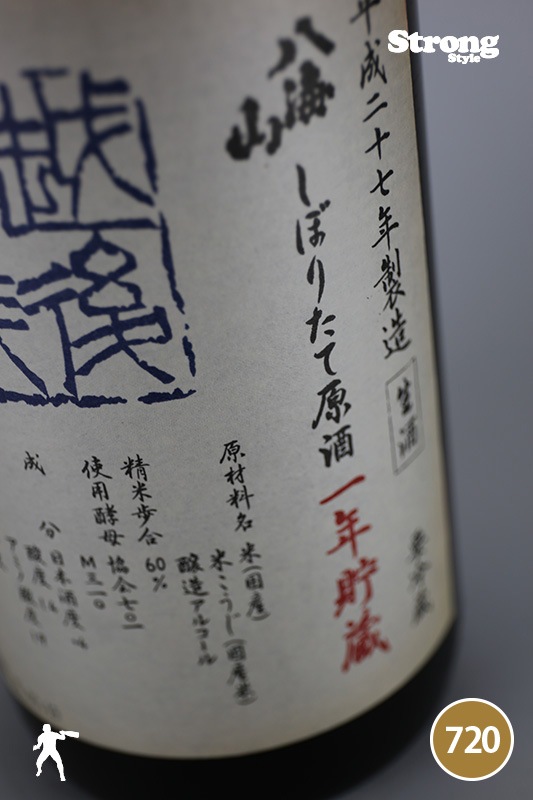 Strong
Style
平成二十七年製造
生酒
要冷蔵
八海山
しぼりたて原酒 一年貯蔵
越後
原材料名 米(国産)
米こうじ(国産米)
醸造アルコール
精米歩合 60%
使用酵母 協会七〇一
M三一〇
成 分 日本酒度
酸度
アミノ酸度
720